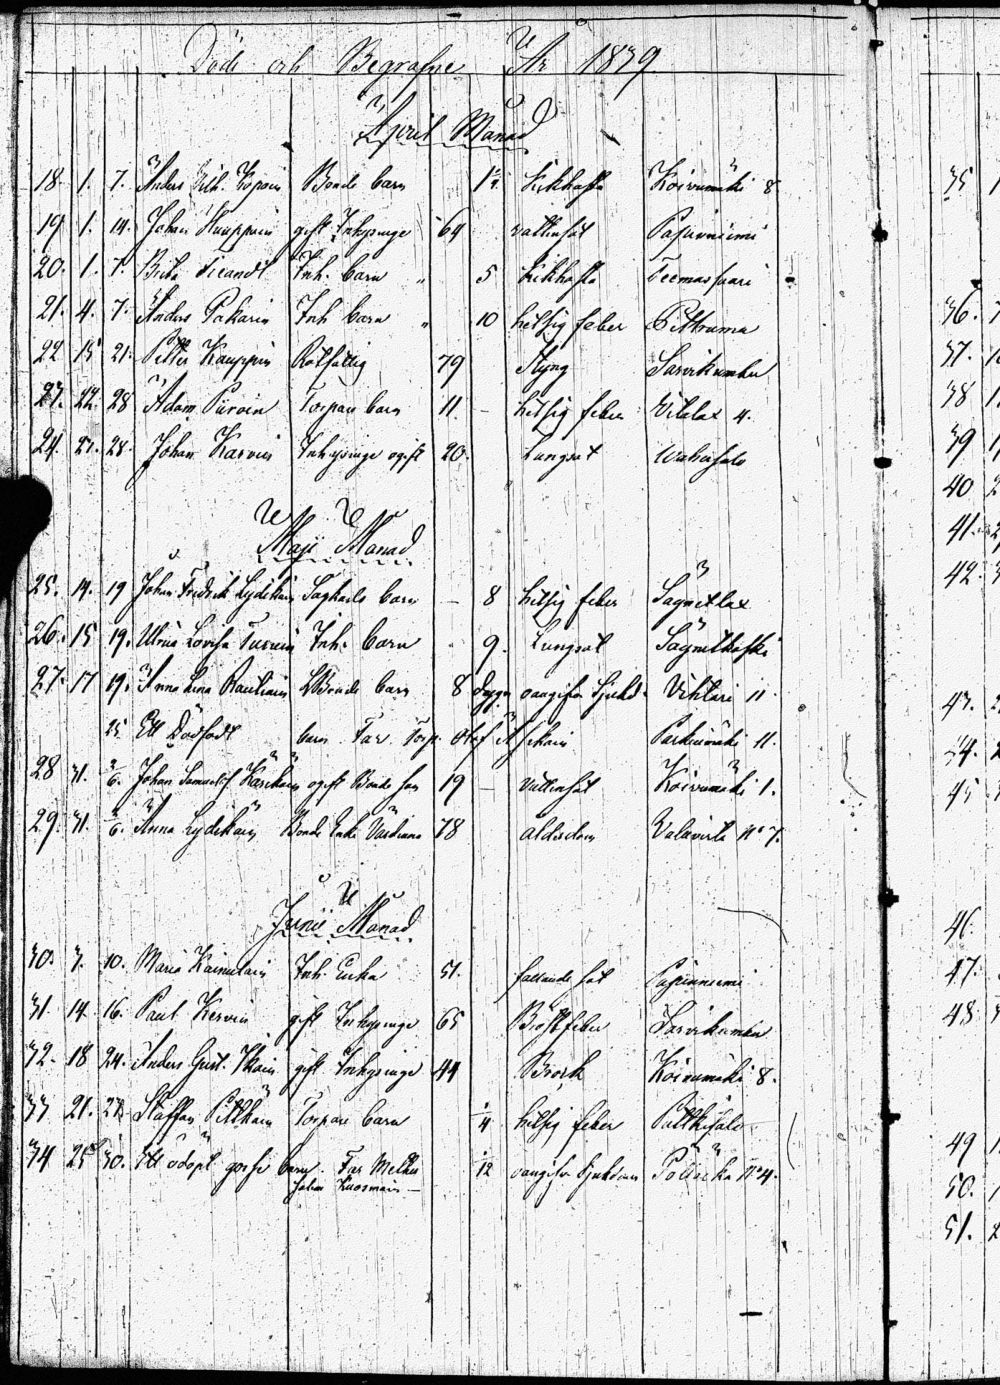 Döde och Begrafne År 1839
April Månad
18. 1. 7. Anders Erih. Kopoin Bonde barn 1½ kikhosta Koivumäki 8
19 1. 14. Johan Kauppoin gift Inhysinge 64 vattusot Papinniemi
20. 1. 7. Brita Ticandt Inh. barn " 5 kikhosta Teemassaari
21. 4. 7. Anders Pakarin Inh barn " 10 hetsig feber
22 15 21. Petter Kauppin Rotfattig 79 Styng Sarvikumbu
23. 22. 28 Adam Piiroin Torpare barn 11 - hetsig feber 4.
24. 23. 28. Johan Karvin Inhysinge ogift 20. Lungsot
Maji Månad
25. 14. 19 Johan Fredrik Lydikäin Sagkarls barn - 8 hetsig feber Sagnetlax
26. 15 19. Ulrica Lovisa Turuin Inh. barn 9. Lungsot
27. 17 19. Anna Lena Rautiain Bonde barn 8 dygn oangifven Sjukd. Vihtari 11
25 Ett Dödfödt barn Far Torp. Olof Parkumäki 11.
28 31. 2/6. Johan Samuelss. Kärkäin ogift Bonde son 19 - Vattusot Koivumäki 1.
29. 31. 2/6. Anna Lydikäin Bonde Enka Väänäne 78 ålderdom Valavirta No 7.
Junii Månad
30. 3. 10. Maria Kainulain Inh. Enka 51. fallande sot Papinniemi
31 14 16. Paul Kervin gift Inhysinge 65 Bröstfeber Sarvikumbu
32. 18 24. Anders Gust. Ikäin gift Inhysinge 44 Bråck Koivumäki 8.
33 21. 23. Staffan Pitkäin Torpare barn ¼ hetsig feber
34 25 30. Ett odöpt gosse barn. Far 1/12 oangifven Sjukdom Pölläkkä No 4.
Johan Kuosmain -
35 1
36. 7
37. 1
38 1
39 1
40 2
41. 2
42. 3
43. 2
44. 2
45
46.
47.
48.
49 1
50. 1
51. 2